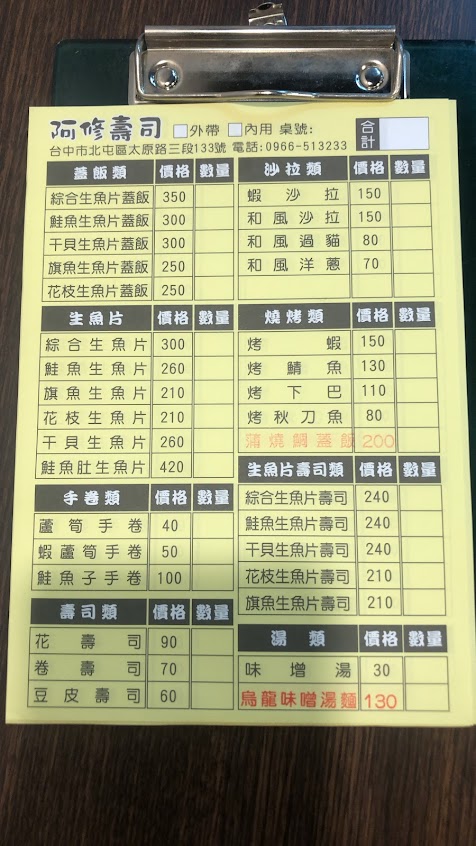 阿修壽司 □外帶 □內用 桌號: 合計
台中市北屯區太原路三段133號 電話:0966-513233
蓋飯類 價格 數量
綜合生魚片蓋飯 350
鮭魚生魚片蓋飯 300
干貝生魚片蓋飯 300
旗魚生魚片蓋飯 250
花枝生魚片蓋飯 250
生魚片 價格 數量
綜合生魚片 300
鮭魚生魚片 260
旗魚生魚片 210
花枝生魚片 210
干貝生魚片 260
鮭魚肚生魚片 420
手卷類 價格 數量
蘆筍手卷 40
蝦蘆筍手卷 50
鮭魚子手卷 100
壽司類 價格 數量
花壽司 90
卷壽司 70
豆皮壽司 60
沙拉類 價格 數量
蝦沙拉 150
和風沙拉 150
和風過貓 80
和風洋蔥 70
燒烤類 價格 數量
烤蝦 150
烤鯖魚 130
烤下巴 110
烤秋刀魚 80
蒲燒鯛蓋飯 200
生魚片壽司類 價格 數量
綜合生魚片壽司 240
鮭魚生魚片壽司 240
干貝生魚片壽司 240
花枝生魚片壽司 210
旗魚生魚片壽司 210
湯類 價格 數量
味增湯 30
烏龍味噌湯麵 130